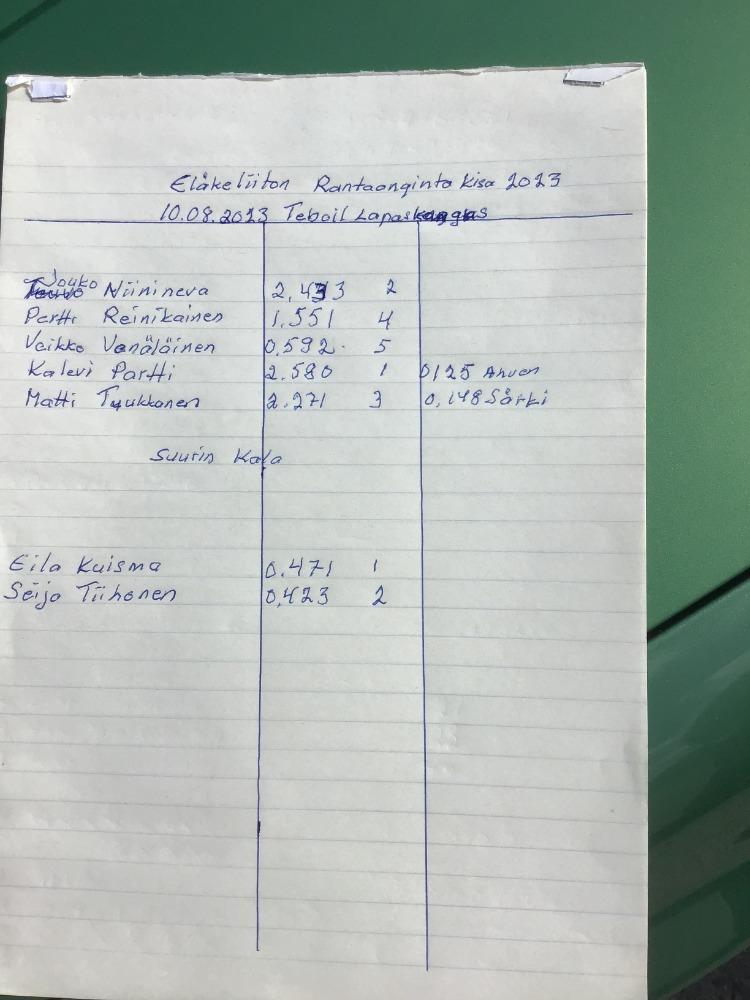 Eläkeliiton Rantaonginta Kisa 2023
10.08.2023 Teboil Lapaskangas
Jouko Niinineva 2,433 2
Partti Reinikainen 1.551 4
Veikko Venäläinen 0.592. 5
Kalevi Partti 2.580 1 0,125 Ahven
Matti Tuukkanen 2.271 3 0,148 Särki
Suurin Kala
Eila Kuisma 0.471 1
Seija Tiihonen 0,423 2